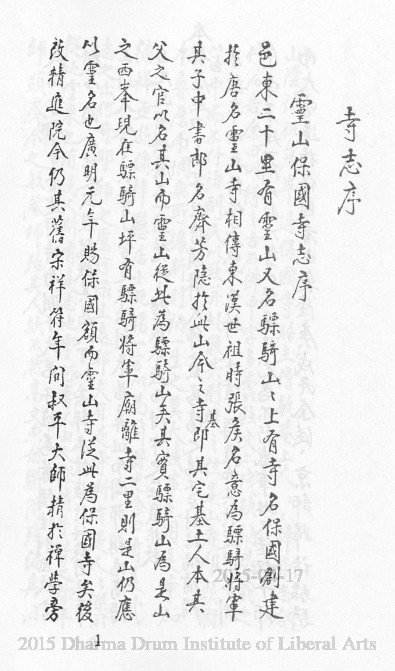 寺志序
靈山保國寺志序
邑東二十里有靈山又名驃騎山〻上有寺名保國創建
於唐名靈山寺相傳東漢世祖時張侯名意為驃騎將軍
其子中書郎名齊芳隱於此山今之寺基即其宅基土人本其
父之官以名其山而靈山從此為驃騎山矣其實驃騎山為是山
之西峯現在驃騎山坪有驃騎將軍廟離寺二里則是山仍應
以靈名也廣明元年賜保國額而靈山寺從此為保國寺矣後
改精進院今仍其舊宋祥符年間叔平大師精於禪學旁
1
2015-04-17
2015 Dharma Drum Institute of Liberal Arts